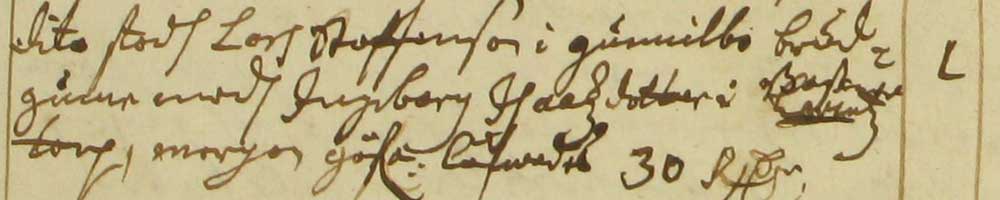 dito stod Lars Staffenson i gunnilbo brud-
gume med Ingibarg Isaacz dotter i
torp, morgon gåfa låfwades 30 Rdhr.
L